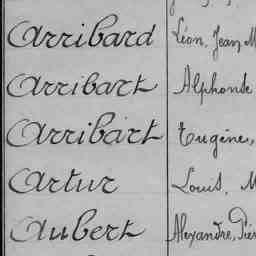 Arribard Léon, Jean M
Arribart Alphonse
Arribart Eugène,
Artur Louis, M
Aubert Alexandre, Pier